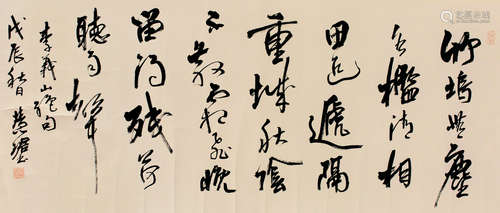 竹塢無塵
水檻清相
思迢遞隔
重城秋陰
不散霜飛晚
留得残荷
聽雨聲
李義山絶句
戊辰秋日